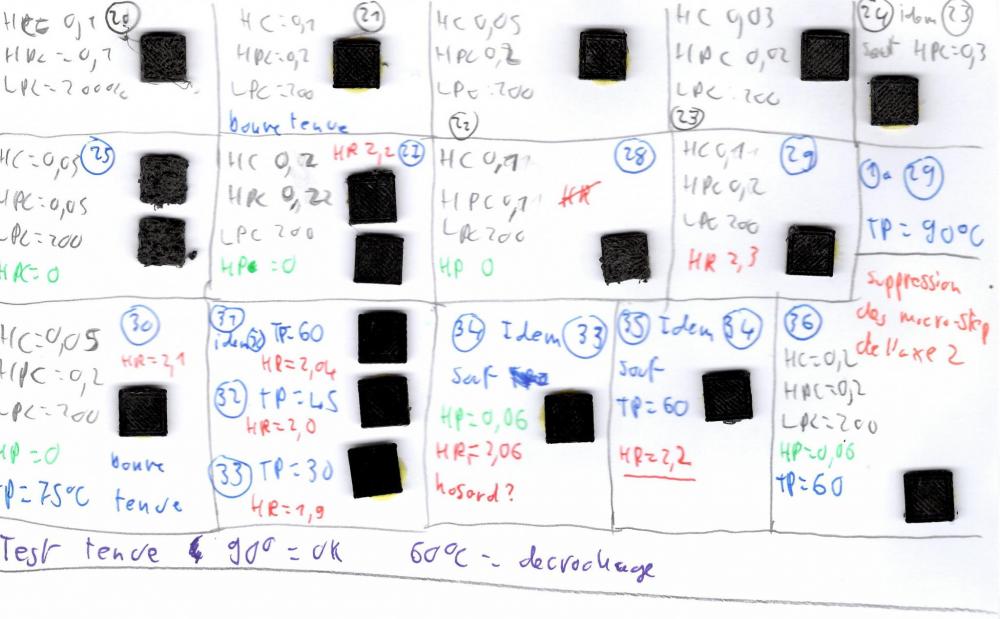 20
HC 0,1
HPC = 0,1
LPC = 200%
21
HC = 0,1
HPC = 0,2
LPC = 200
bonne tenue
HC 0,05
HPC 0,2
LPC = 200
22
HC 0,03
HPC 0,02
LPC = 200
23
24 idem 23
sauf HPC = 0,3
HC = 0,05 25
HPC = 0,05
LPC = 200
HPC = 0
HC 0,2 HR 2,2 27
HPC 0,22
LPC 200
HPC = 0
HC 0,1 28
HPC 0,1 HR
LPC 200
HP 0
HC 0,1 29
HPC 0,2
LPC 200
HR 2,3
1 a 29
TP = 90°C
suppression
des micro-step
de l'axe 2
30
HC = 0,05
HR = 2,1
HPC = 0,2
LPC = 200
HP = 0
TP = 75°C
bonne
tenue
31 TP = 60
idem 30
HR = 2,04
32 TP = 45
HR = 2,0
33 TP = 30
HR = 1,9
34 Idem 33
sauf
HP = 0,06
HR = 2,06
hasard ?
35 Idem 34
sauf
TP = 60
HR = 2,2
36
HC = 0,2
HPC = 0,2
LPC = 200
HP = 0,06
TP = 60
Test tenue 90° = OK 60°C = decrochage